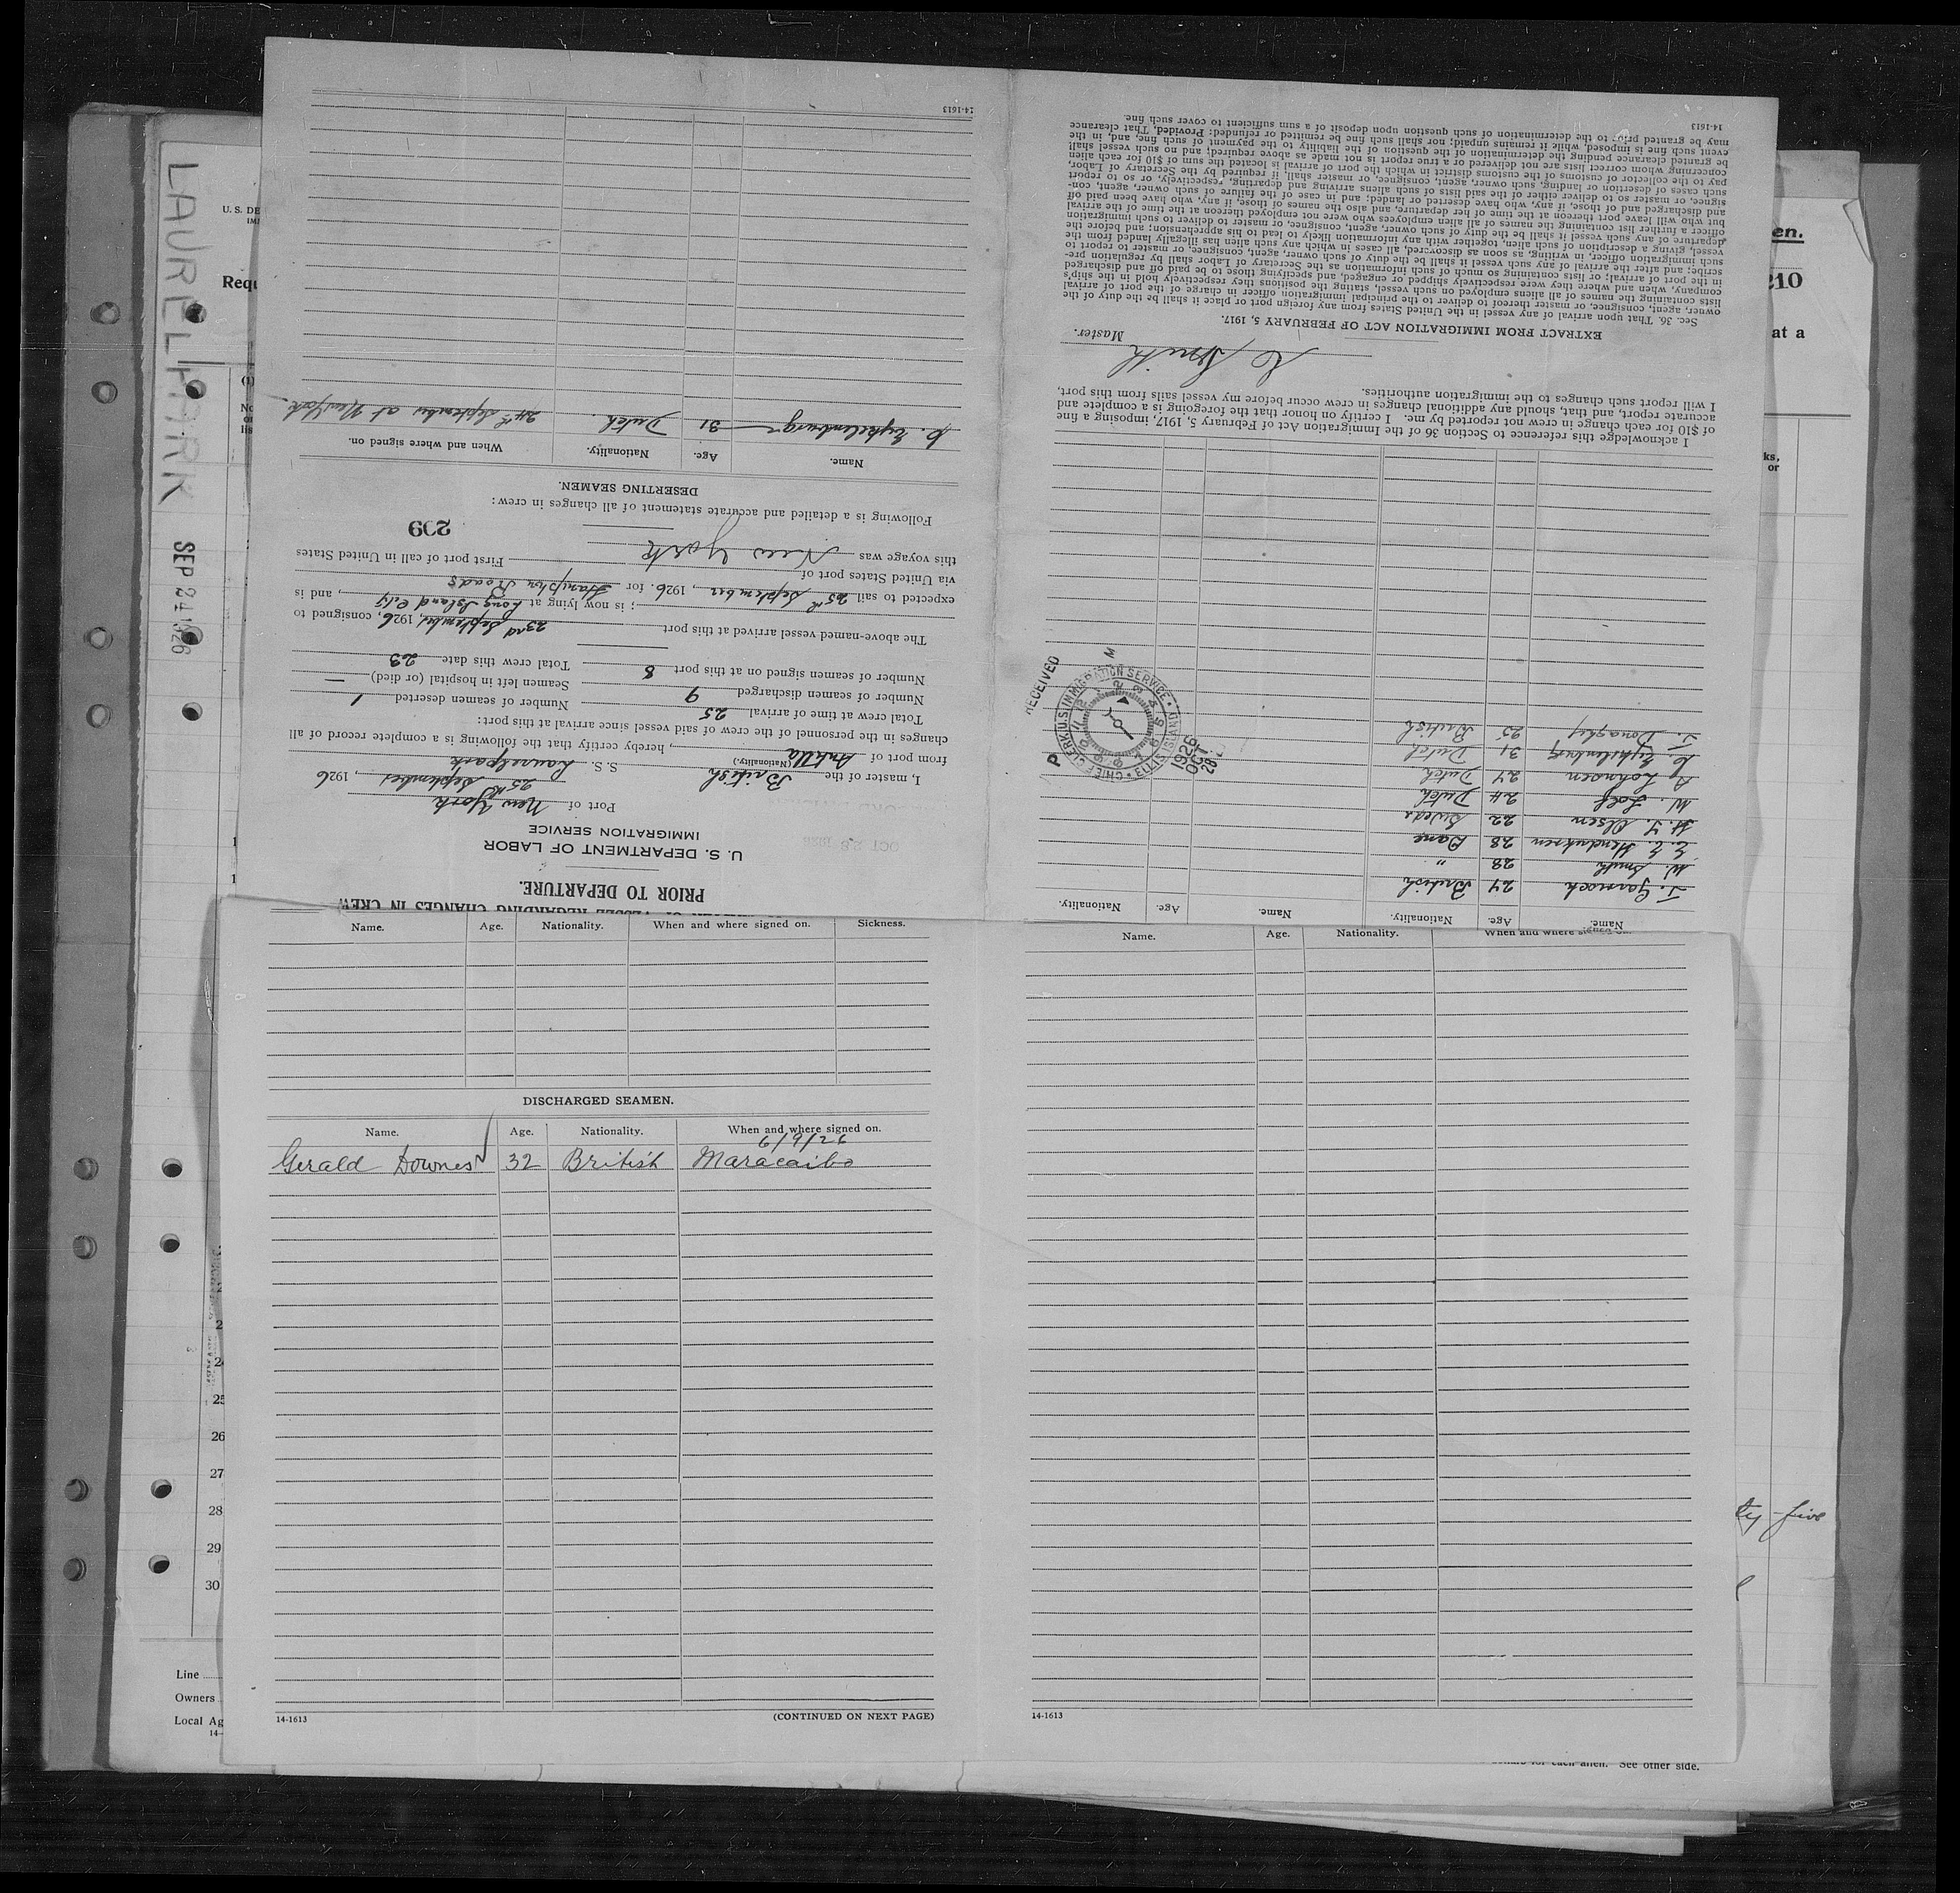 LAURELPARK
SEP 24 1926
U. S. DE
Requ
en.
210
at a
ks,
or
PRIOR TO DEPARTURE.
U. S. DEPARTMENT OF LABOR
IMMIGRATION SERVICE
Port of New York
25th September, 1926
I, master of the British S. S. Laurelpark
(Nationality.)
from port of Antilla, hereby certify that the following is a complete record of all
changes in the personnel of the crew of said vessel since arrival at this port:
Total crew at time of arrival 25 Number of seamen deserted 1
Number of seamen discharged 9 Seamen left in hospital (or died) —
Number of seamen signed on at this port 8 Total crew this date 23
The above-named vessel arrived at this port 23rd September, 1926, consigned to
; is now lying at Long Island City, and is
expected to sail 25th September, 1926. for Hampton Roads
via United States port of
First port of call in United States
this voyage was New York
209
Following is a detailed and accurate statement of all changes in crew:
DESERTING SEAMEN.
Name. Age. Nationality. When and where signed on.
C. Eykelenburg 31 Dutch. 24th September at New York.
14-1613
Name. Age. Nationality. Name. Age. Nationality.
J. Garnock 24 British
W. Smith 28 "
E. E. Hendriksen 28 Dane
H. T. Olsen 22 Swede
W. Loef 24 Dutch
24 Dutch
C. Eykelenburg 31 Dutch
J. Donaghey 25 British
RECEIVED
CHIEF CLERK U.S. IMMIGRATION SERVICE • ELLIS ISLAND
1926
OCT
28
P
M
I acknowledge this reference to Section 36 of the Immigration Act of February 5, 1917, imposing a fine
of $10 for each change in crew not reported by me. I certify on honor that the foregoing is a complete and
accurate report, and that, should any additional changes in crew occur before my vessel sails from this port,
I will report such changes to the immigration authorities.
C Smith
Master.
EXTRACT FROM IMMIGRATION ACT OF FEBRUARY 5, 1917.
Sec. 36. That upon arrival of any vessel in the United States from any foreign port or place it shall be the duty of the
owner, agent, consignee, or master thereof to deliver to the principal immigration officer in charge of the port of arrival
lists containing the names of all aliens employed on such vessel, stating the positions they respectively hold in the ship's
company, when and where they were respectively shipped or engaged, and specifying those to be paid off and discharged
in the port of arrival; or lists containing so much of such information as the Secretary of Labor shall by regulation pre-
scribe; and after the arrival of any such vessel it shall be the duty of such owner, agent, consignee, or master to report to
such immigration officer, in writing, as soon as discovered, all cases in which any such alien has illegally landed from the
vessel, giving a description of such alien, together with any information likely to lead to his apprehension; and before the
departure of any such vessel it shall be the duty of such owner, agent, consignee, or master to deliver to such immigration
officer a further list containing the names of all alien employees who were not employed thereon at the time of the arrival
but who will leave port thereon at the time of her departure, and also the names of those, if any, who have been paid off
and discharged and of those, if any, who have deserted or landed; and in case of the failure of such owner, agent, con-
signee, or master so to deliver either of the said lists of such aliens arriving and departing, respectively, or so to report
such cases of desertion or landing, such owner, agent, consignee, or master shall, if required by the Secretary of Labor,
pay to the collector of customs of the customs district in which the port of arrival is located the sum of $10 for each alien
concerning whom correct lists are not delivered or a true report is not made as above required; and no such vessel shall
be granted clearance pending the determination of the question of the liability to the payment of such fine, and, in the
event such fine is imposed, while it remains unpaid; nor shall such fine be remitted or refunded: Provided, That clearance
may be granted prior to the determination of such question upon deposit of a sum sufficient to cover such fine.
14-1613
Name. Age. Nationality. When and where signed on. Sickness.
DISCHARGED SEAMEN.
Name. Age. Nationality. When and where signed on.
6/9/26
Gerald Downes 32 British Maracaibo
14-1613 (CONTINUED ON NEXT PAGE)
Name. Age. Nationality. When and where signed on.
14-1613
26
27
28
29
30
Line
Owners
Local Ag
ty-five
See other side.